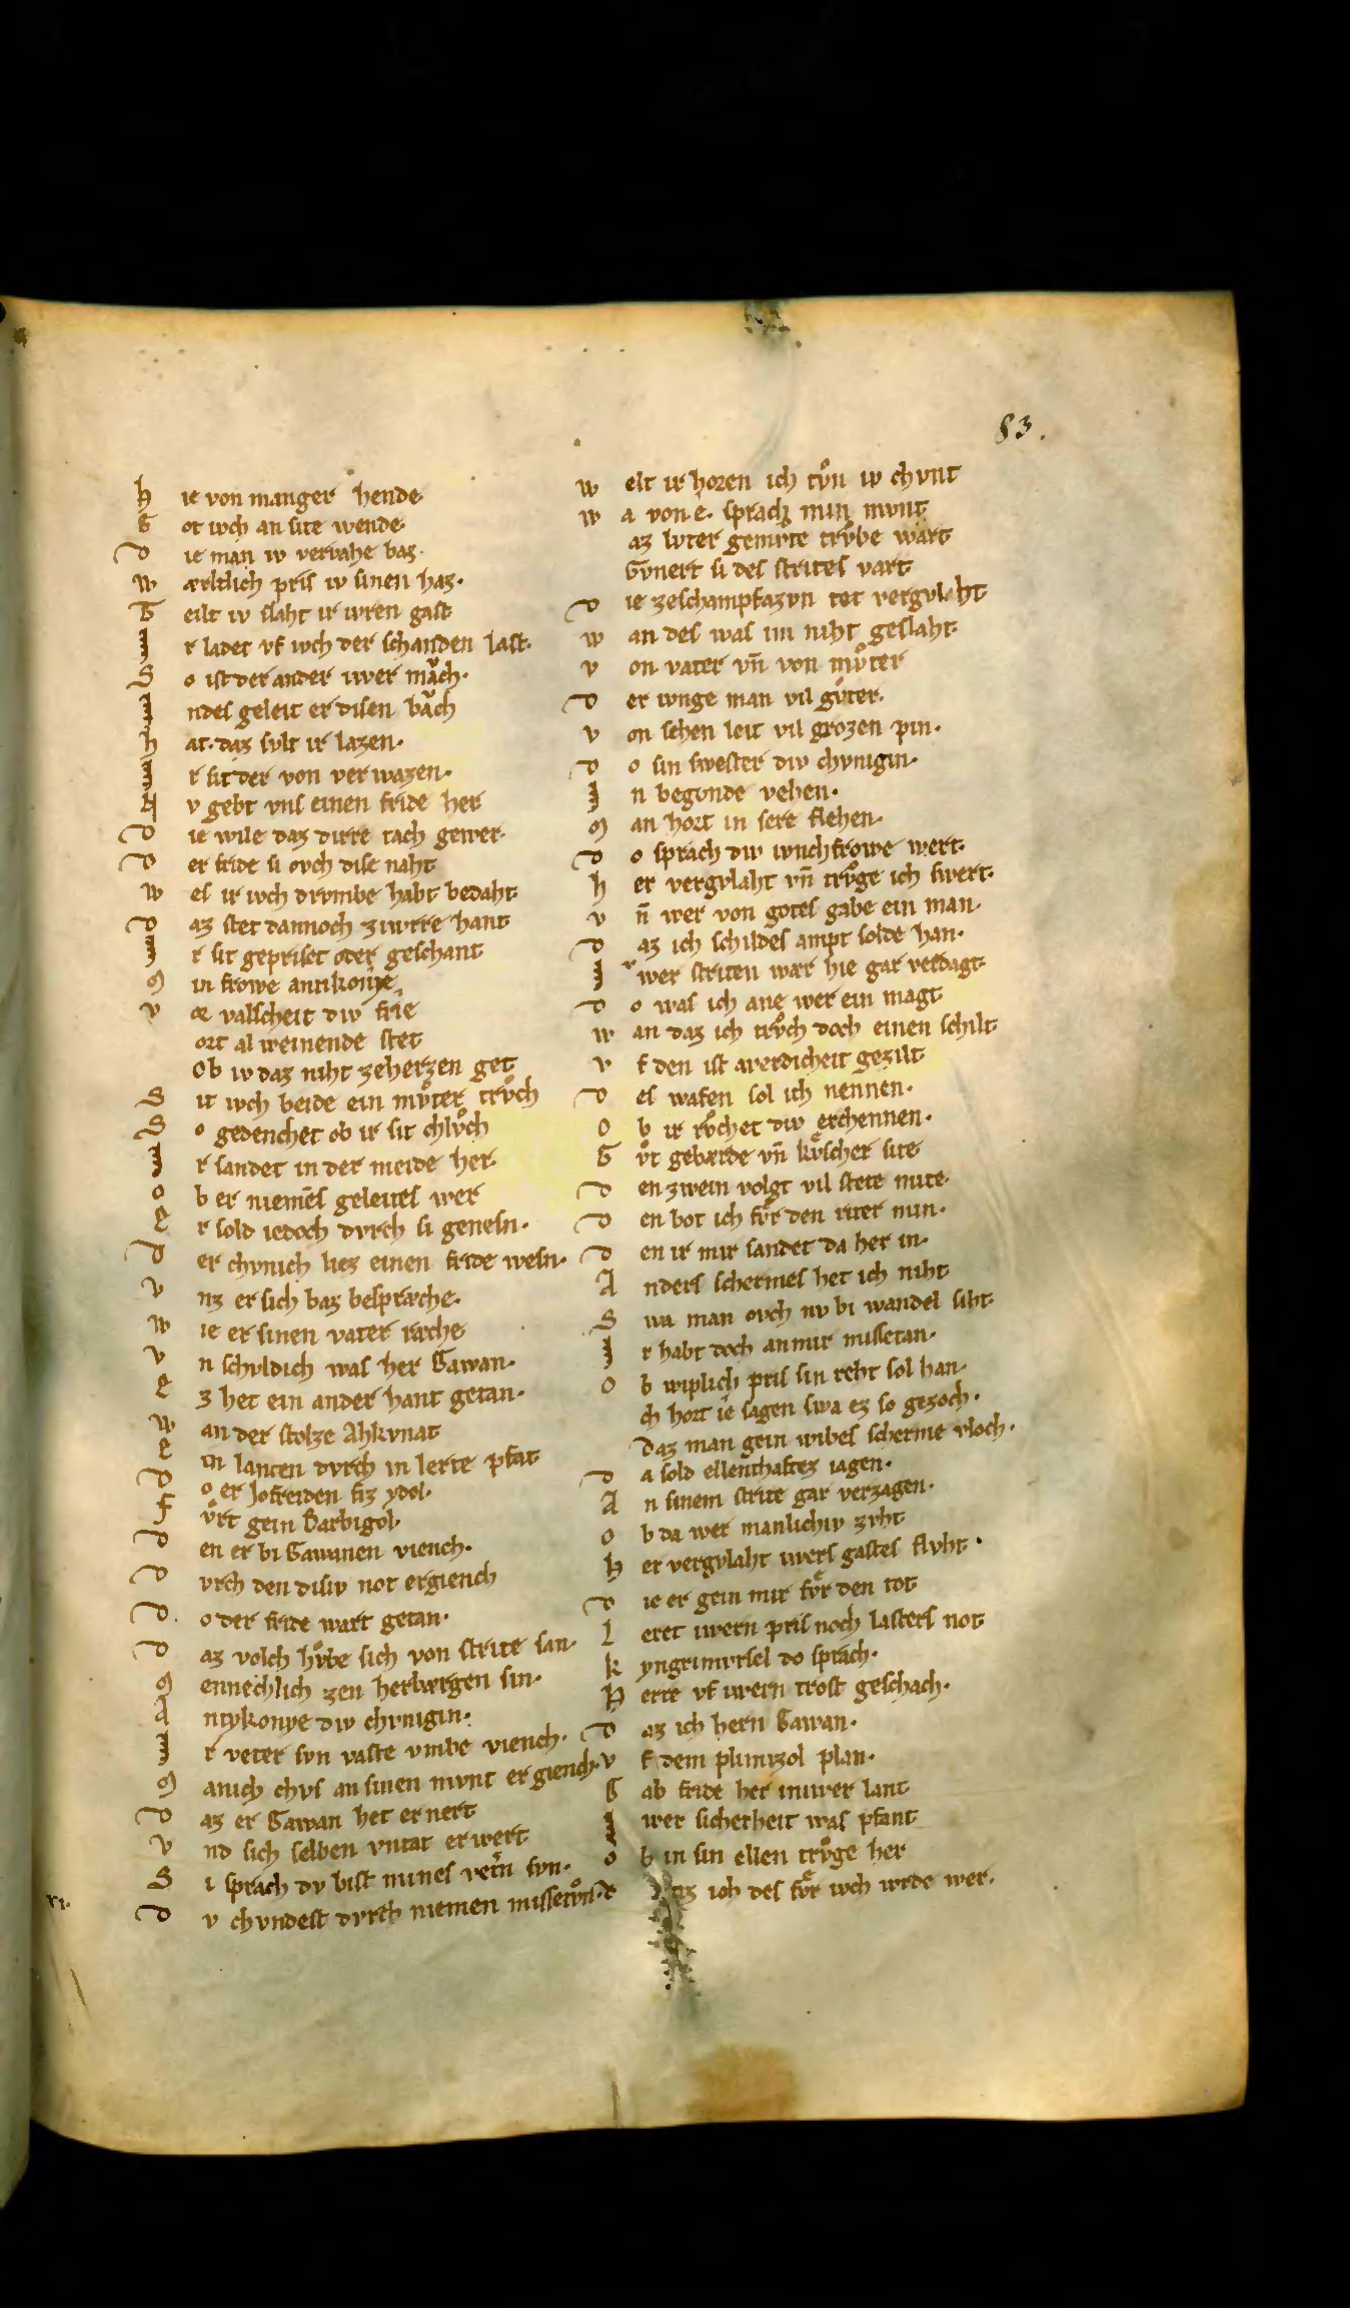 83.
h ie von manger hende
G ot iwch an site wende
D ie man iw vervahe baz.
w ærltlich pris iw sinen haz.
T eilt iw slaht ir iwren gast
I r ladet vf iwch der schanden last.
S o ist der ander iwer mach.
I ndes geleit er disen bach
h at. daz svlt ir lazen.
I r sit der von verwazen.
N v gebt vns einen fride her
D ie wile daz dirre tach gewer.
D er fride si ovch dise naht
w es ir iwch drvmbe habt bedaht.
D az stet dannoch ziwrre hant
I r sit gepriset oder geschant
M in frowe antikonie
v œ valscheit div frie
ort al weinende stet
Ob iw daz niht zeherzen get
S it iwch beide ein mvͦter trvͦch
S o gedenchet ob ir sit chlvͦch
I r sandet in der meide her.
O b er niemēs geleites wer
E r sold iedoch dvrch si genesn.
D er chvnich liez einen fride wesn.
V nz er sich baz bespræche.
W ie er sinen vater ræche
V n schvldich was her Gawan.
E z het ein ander hant getan.
W an der stolze Ahkvnat
E in lancen dvrch in lerte pfat
D o er Jofreiden fiz ydol.
F vͦrt gein Barbigol.
D en er bi Gawanen viench.
D vrch den disiv not ergiench
D o der fride wart getan.
D az volch hvͦbe sich von strite san.
M ennechlich zen herbærgen sin.
A ntykonye div chvnigin.
I r veter svn vaste vmbe viench.
M anich chvs an sinen mvnt ergiench.
D az er Gawan het ernert
V nd sich selben vntat erwert
S i sprach dv bist mines vetrn svn.
D v chvndest dvrch niemen missetvͦn.
w elt ir horen ich tvͦn iw chvnt
w a von e. sprach min mvnt
az lvter gemvͤte trvbe wart
Gvnert si des strites vart
D ie zeschampfazvn tet vergvlaht
w an des was im niht geslaht.
v on vater vn̄ von mvͦter
D er ivnge man vil gvter.
v on sehen leit vil grozen pin.
D o sin swester div chvnigin.
I n begvnde vehen.
M an hort in sere flehen.
D o sprach div ivnchfrowe wert.
h er vergvlaht vn̄ trvͦge ich swert.
v n̄ wer von gotes gabe ein man.
D az ich schildes ampt solde han.
I wer striten wær hie gar verdagt.
D o was ich ane wer ein magt
w an daz ich trvͦch doch einen schilt
v f den ist werdicheit gezilt
D es wafen sol ich nennen.
O b ir rvͦchet div erchennen.
G vͦt gebærde vn̄ kvͤscher site
D en zwein volgt vil stete mite.
D en bot ich fvͤr den riter min.
D en ir mir sandet da her in.
A nders schermes het ich niht
S wa man ovch nv bi wandel siht.
I r habt doch an mir missetan.
O b wiplich pris sin reht sol han.
ch hort ie sagen swa ez so gezoch.
Daz man gein wibes scherme vloch.
D a sold ellenthaftez iagen.
A n sinem strite gar verzagen.
O b da wer manlichiv zvht
H er vergvlaht iwers gastes flvht.
D ie er gein mir fvͤr den tot
L eret iwern pris noch lasters not
K yngrimvrsel do sprach.
H erre vf iwern trost geschach.
D az ich hern Gawan.
v f dem plimizol plan.
G ab fride her in iwer lant
I wer sicherheit was pfant
O b in sin ellen trvͦge her
D az ich des fvͤr iwch wrde wer.